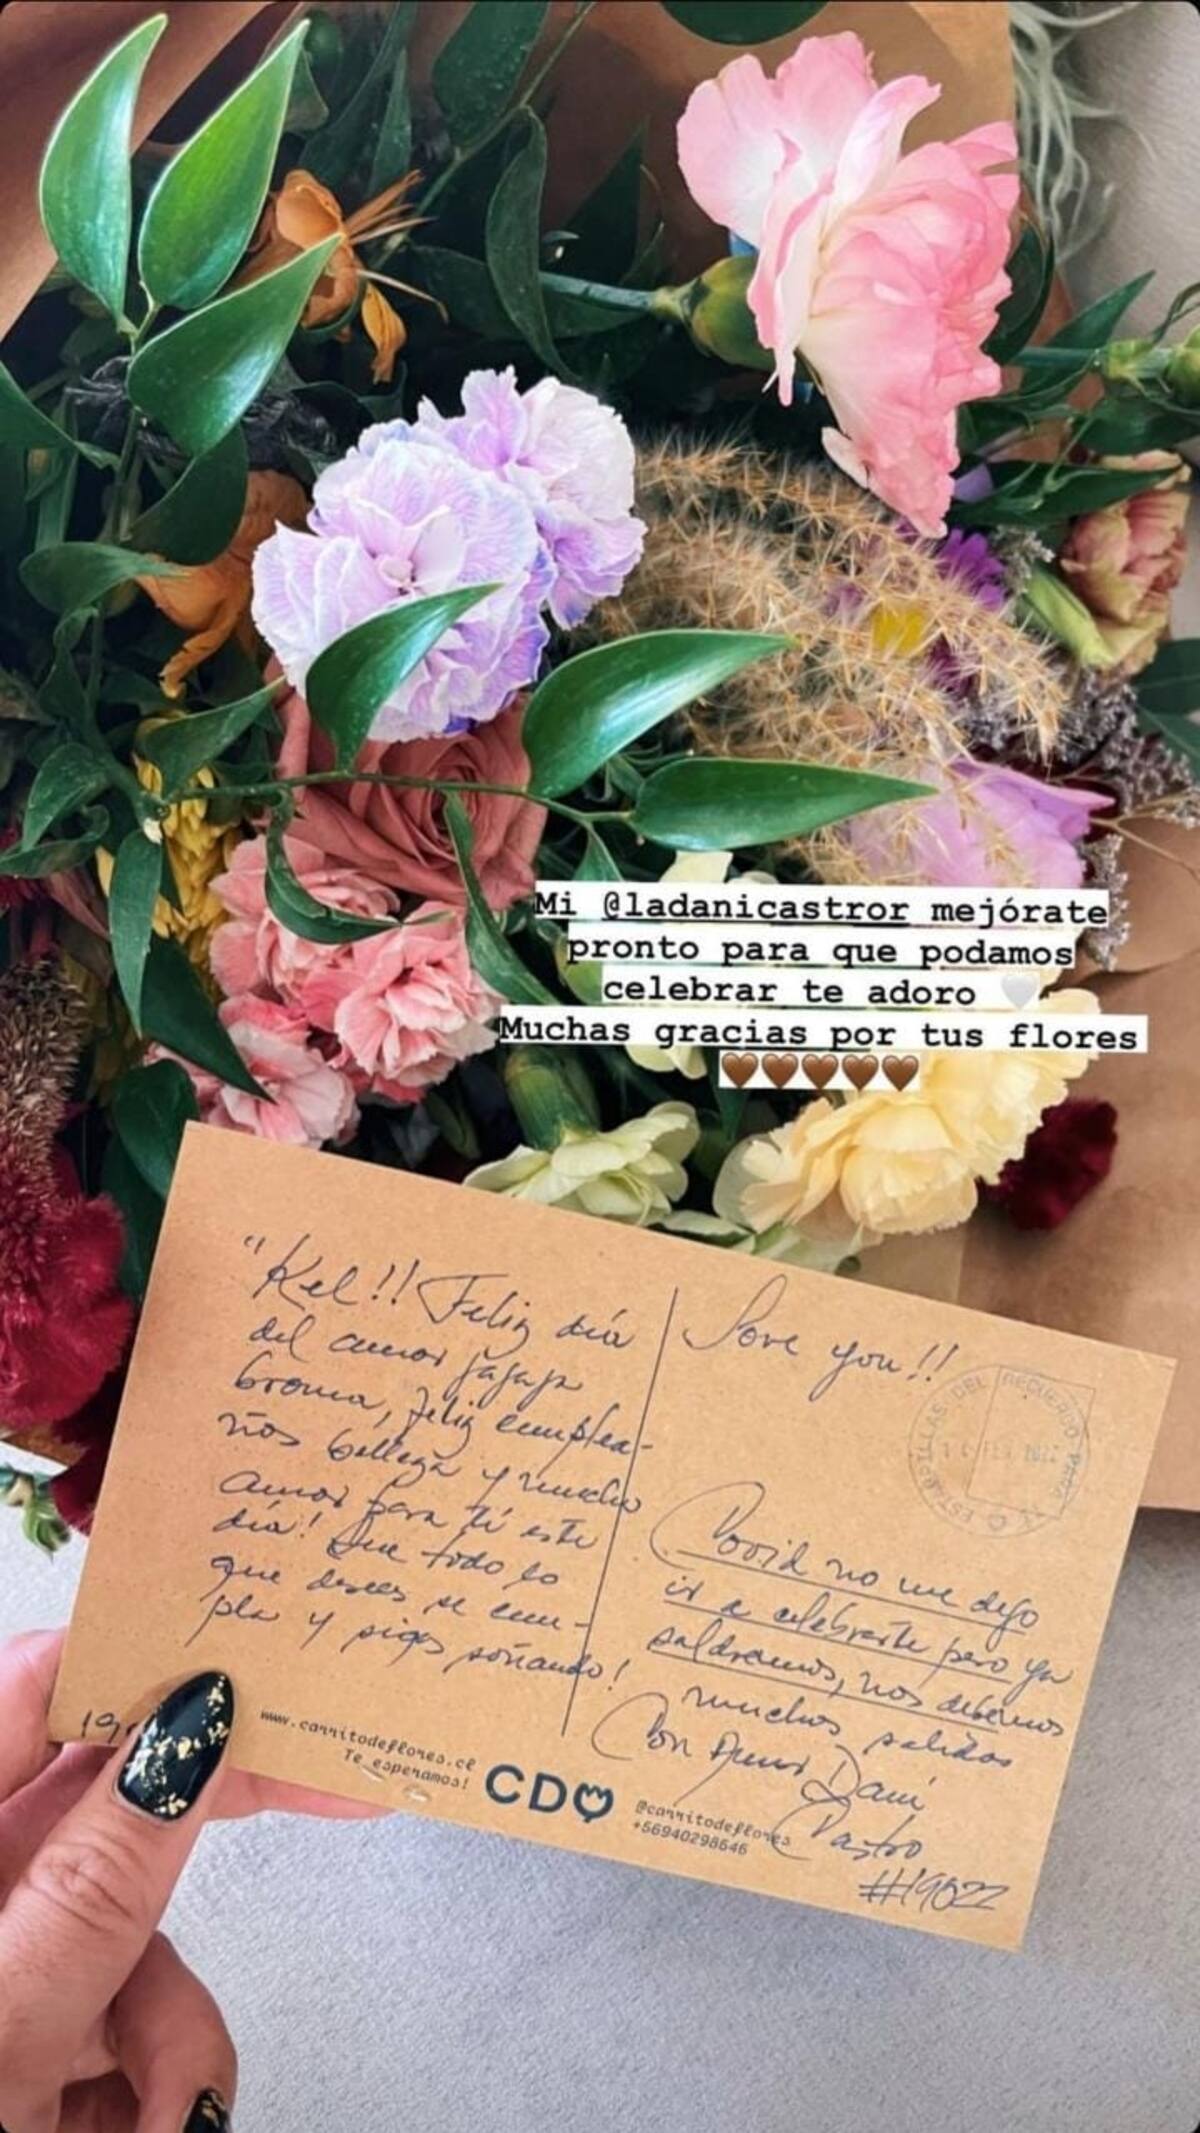 Mi @ladanicastror mejórate
pronto para que podamos
celebrar te adoro 🤍
Muchas gracias por tus flores
🤎🤎🤎🤎🤎
"Kel!! Feliz día
del amor jajaja
broma, feliz cumplea-
ños belleza y mucho
amor para tí este
día! Que todo lo
que desees se cum-
pla y sigas soñando!
Love you!!
ESTAS ESTILLAS DEL RECUERDO PARA
Covid no me dejo
ir a celebrarte pero ya
saldremos, nos debemos
muchas salidas
Con Amor Dani
Castro
#19622
www.carritodeflores.cl
Te esperamos!
CDO
@carritodeflores
+56940298646